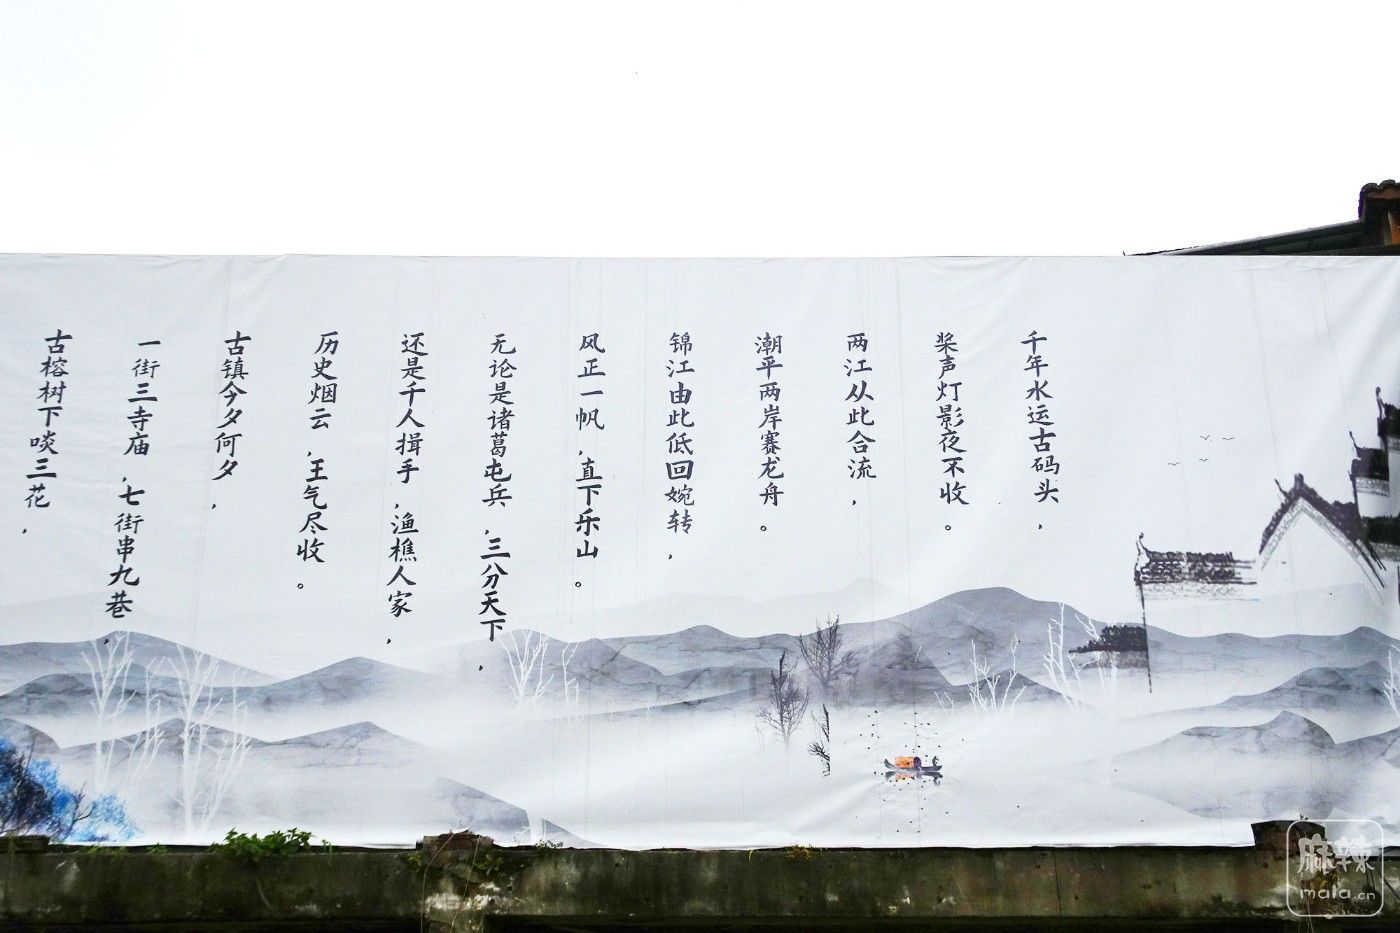 千年水运古码头，
桨声灯影夜不收。
两江从此合流，
潮平两岸赛龙舟。
锦江由此低回婉转，
风正一帆，直下乐山。
无论是诸葛屯兵，三分天下，
还是千人揖手，渔樵人家，
历史烟云，王气尽收。
古镇今夕何夕，
一街三寺庙，七街串九巷，
古榕树下啖三花，
麻辣
mala.cn